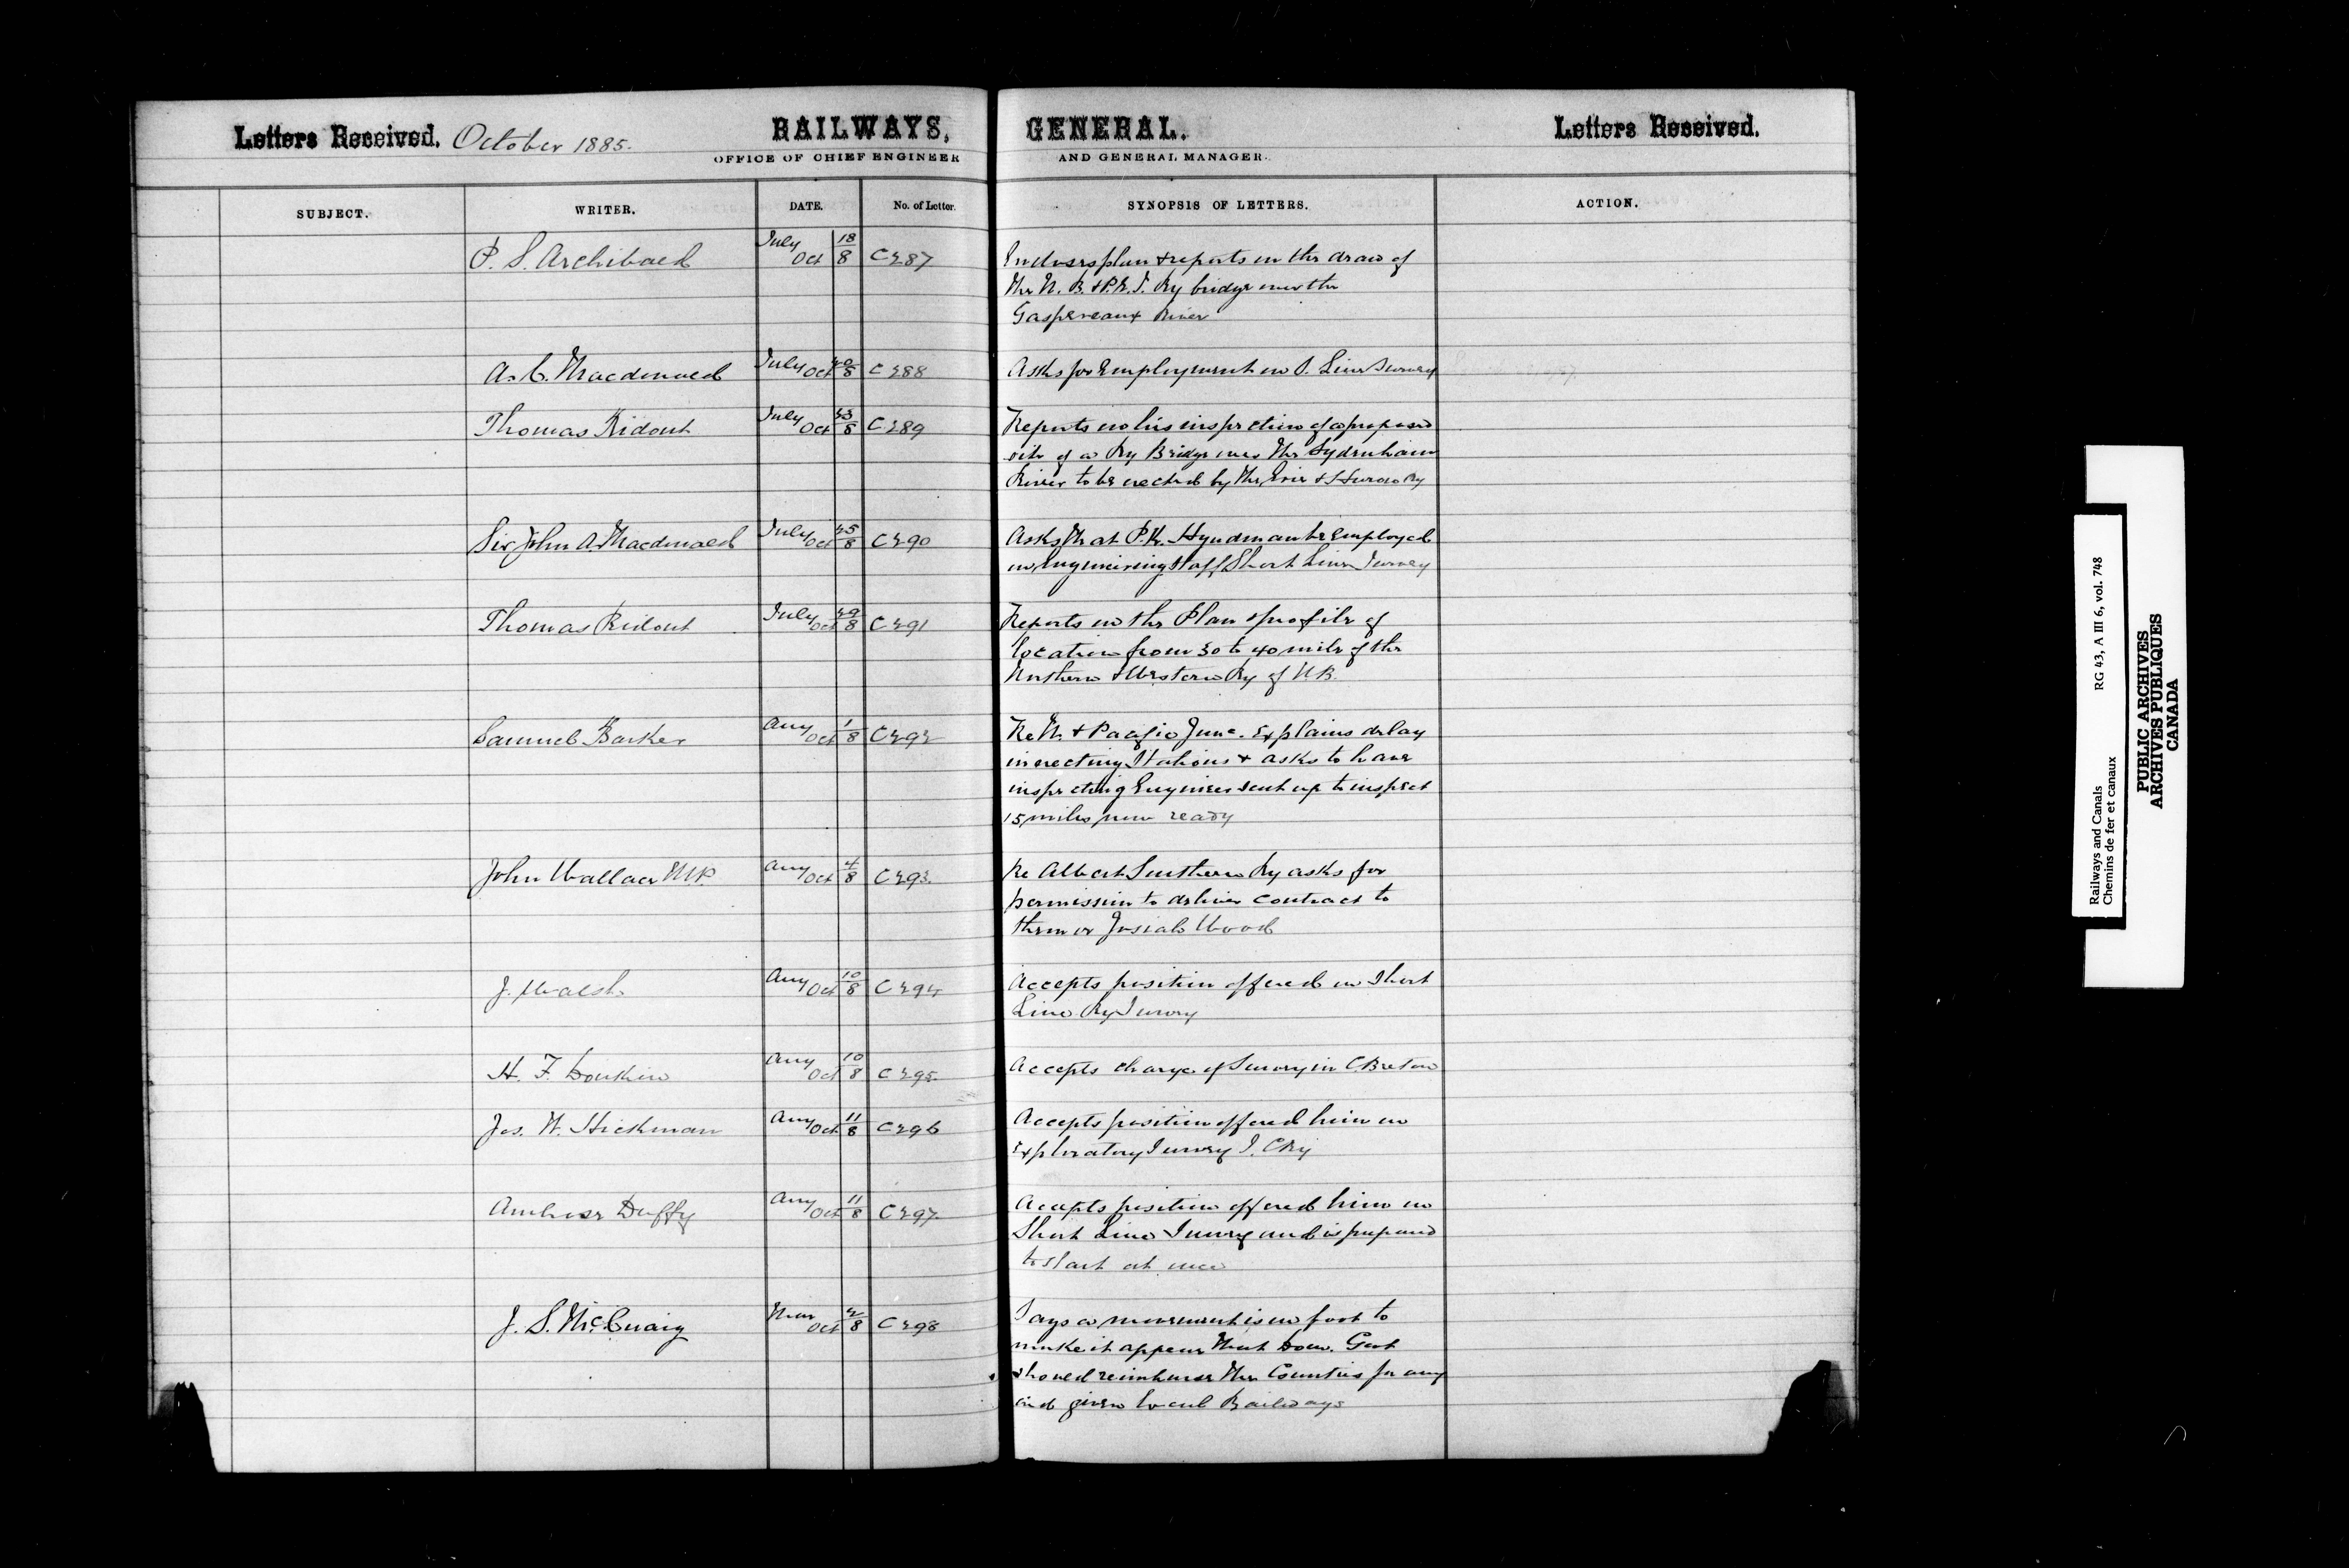 Letters Received. October 1885. RAILWAYS, GENERAL. Letters Received.
OFFICE OF CHIEF ENGINEER AND GENERAL MANAGER.
SUBJECT. WRITER. DATE. No. of Letter. SYNOPSIS OF LETTERS. ACTION.
P. S. Archibald July 18 Oct 8 C287 Encloses plan & reports on the draw of
the N. B. & P.E.I. Ry bridge over the
Gaspereaux River
A. C. Macdonald July 20 Oct 8 C288 Asks for Employment on S. Line Survey
Thomas Ridout July 23 Oct 8 C289 Reports on his inspection of a proposed
site of a Ry Bridge over the Sydenham
River to be erected by the Erie & Huron Ry
Sir John A. Macdonald July 25 Oct 8 C290 Asks that P.K. Hyndman be Employed
on Engineering Staff Short Line Survey
Thomas Ridout July 29 Oct 8 C291 Reports on the Plan & profile of
location from 30 to 40 mile of the
Northern & Western Ry of N.B.
Samuel Barker Aug 1 Oct 8 C292 Re N. & Pacific Junc. Explains delay
in erecting Stations & asks to have
inspecting Engineer sent up to inspect
15 miles now ready
John Wallace M.P. Aug 4 Oct 8 C293. Re Albert Southern Ry asks for
permission to deliver contract to
them or Josiah Wood
J. Walsh Aug 10 Oct 8 C294 Accepts position offered on Short
Line Ry Survey
H. F. Donkin Aug 10 Oct 8 C295. Accepts charge of Survey in C. Breton
Jos. W. Hickman Aug 11 Oct 8 C296 Accepts position offered him on
Exploratory Survey I. C Ry
Ambrose Duffy Aug 11 Oct 8 C297. Accepts position offered him on
Short Line Survey and is prepared
to start at once
J. S. McCuaig Oct 8 C298 Says a movement is on foot to
make it appear that Dom. Govt
should reimburse the Counties for any
aid given local Railways
Railways and Canals RG 43, A III 6, vol. 748
Chemins de fer et canaux
PUBLIC ARCHIVES
ARCHIVES PUBLIQUES
CANADA